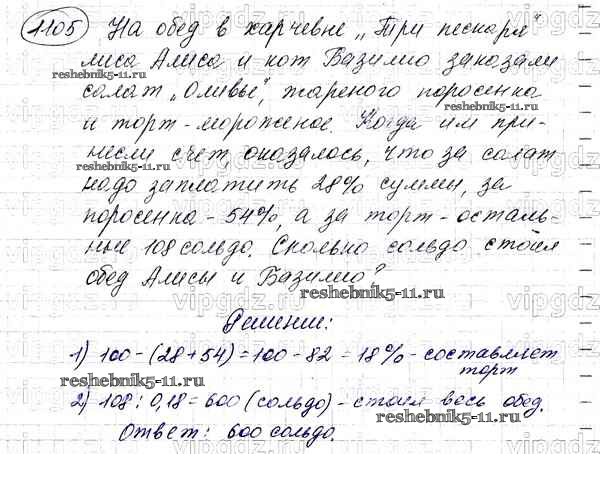 1105 На обед в харчевне „Три пескаря"
лиса Алиса и кот Базилио заказали
reshebnik5-11.ru
салат „Оливье", жареного поросенка
и торт-мороженое. Когда им при-
несли счет, оказалось, что за салат
надо заплатить 28% суммы, за
поросенка - 54%, а за торт - осталь-
ные 108 сольдо. Сколько сольдо стоил
обед Алисы и Базилио?
reshebnik5-11.ru
Решение:
1) 100-(28+54)=100-82=18% - составляет
торт
reshebnik5-11.ru
2) 108:0,18=600 (сольдо) - стоил весь обед.
Ответ: 600 сольдо.